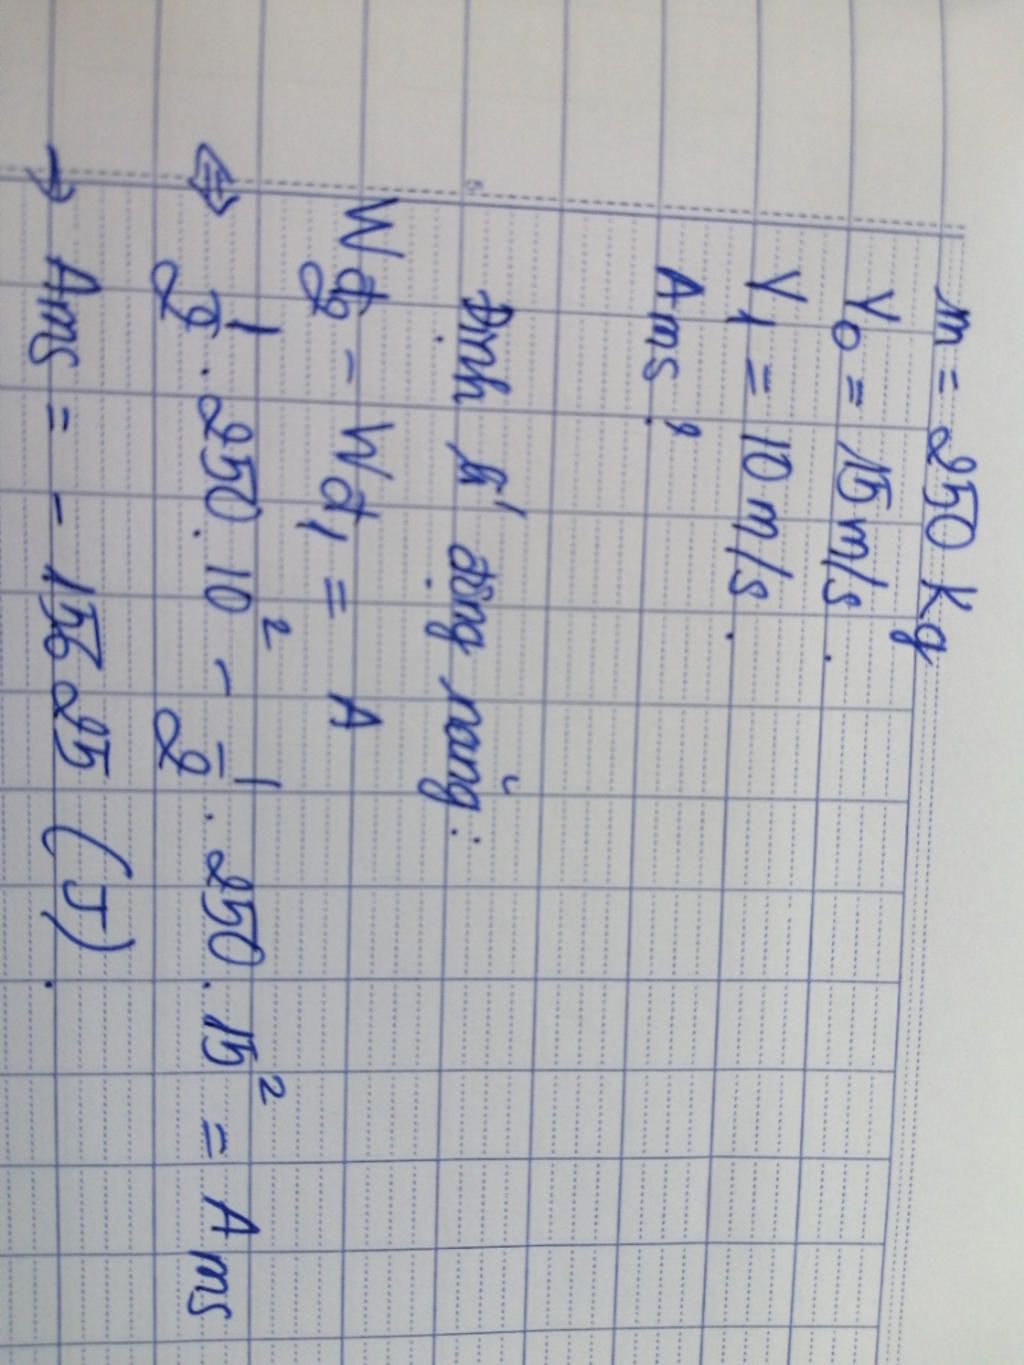 m = 250 kg
V₀ = 15 m/s.
V₁ = 10 m/s.
Ams?
Định lí động năng:
Wđ₂ - Wđ₁ = A
⇔ 1/2 . 250 . 10² - 1/2 . 250 . 15² = Ams
→ Ams = - 15625 (J).